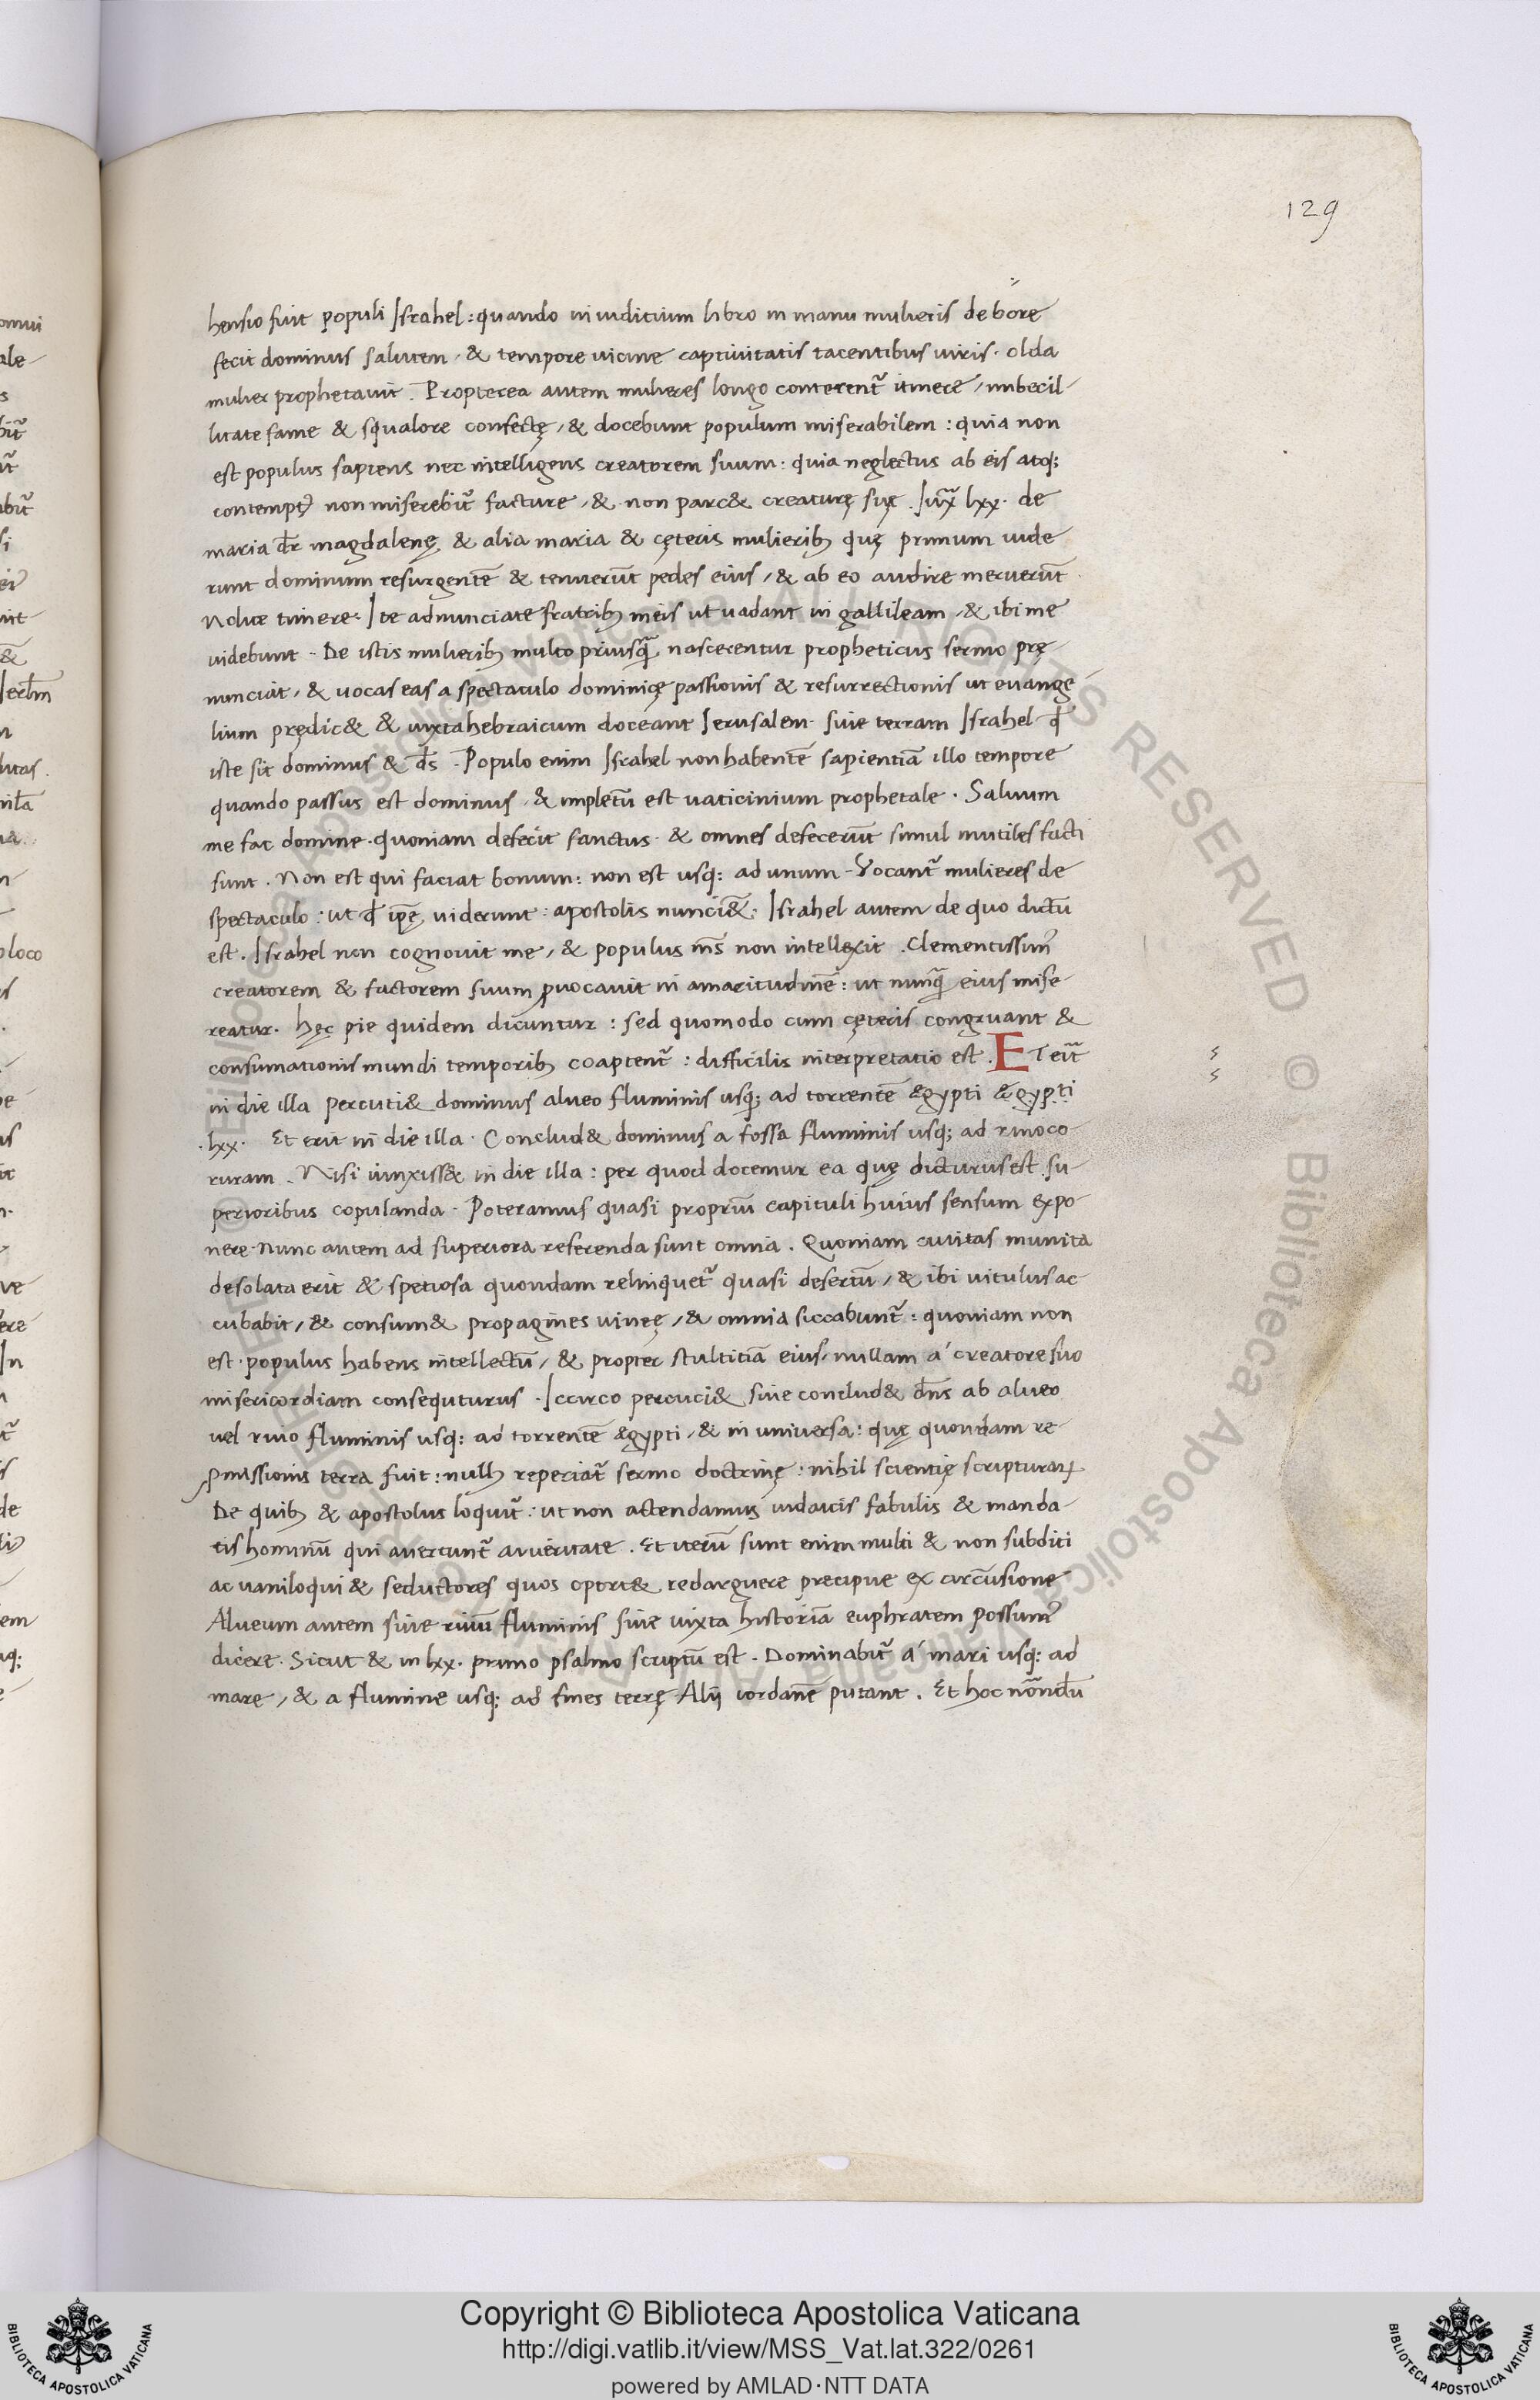 129
hensio fuit populi Israhel: quando in iudicium libro in manu mulieris debore
fecit dominus salutem, & tempore uicine captiuitatis tacentibus uiris. olda
mulier prophetauit. Propterea autem mulieres longo conterentr̄ itinere, imbecil-
litate fame & squalore confectę, & docebunt populum miserabilem: quia non
est populus sapiens nec intelligens creatorem suum: quia neglectus ab eis atq;
contempt᾽ non miserebit̄ facture, & non parc& creaturę suę. Iuxͣ lxx. de
maria d̄r magdalenę & alia maria & cęteris mulierib; quę primum uide
runt dominum resurgentē & tenuerūt pedes eius, & ab eo audire meruerūt
Nolite timere: Ite adnunciate fratrib; meis ut uadant in gallileam, & ibi me
uidebunt. De istis mulierib; multo priusq̄ nascerentur propheticus sermo prę-
nunciat, & uocas eas a spectaculo dominicę passionis & resurrectionis ut euange
lium prędic& & iuxta hebraicum doceant Ierusalem siue terram Israhel q̄
iste sit dominus & d̄s. Populo enim Israhel non habentē sapientiā illo tempore
quando passus est dominus, & impletū est uaticinium prophetale. Saluum
me fac domine. quoniam defecit sanctus. & omnes defecerūt simul inutiles facti
sunt. Non est qui faciat bonum: non est usq; ad unum. Vocantr̄ mulieres de
spectaculo: ut q̄ ip̄ę uiderunt: apostolis nunci&. Israhel autem de quo dictū
est. Israhel non cognouit me, & populus m̄s non intellexit. Clementissim᾽
creatorem & factorem suum ꝓuocauit in amaritudinē: ut nunq̄ eius mise-
reatur. hęc pie quidem dicuntur: sed quomodo cum cęteris congruant &
consumationis mundi temporib; coaptentr̄: difficilis interpretatio est. ET eit̄
in die illa percuti& dominus alueo fluminis usq; ad torrentē ęgypti ęgypti
.lxx. Et erit in die illa. Conclud& dominus a fossa fluminis usq; ad rinoco-
ruram. Nisi iunxiss& in die illa: per quod docemur ea quę dicturus est su-
perioribus copulanda. Poteramus quasi propriū capituli huius sensum expo-
nere. Nunc autem ad superiora referenda sunt omnia. Quoniam ciuitas munita
desolata erit & spetiosa quondam relinquetr̄ quasi desertū, & ibi uitulus ac-
cubabit, & consum& propagines uineę, & omnia siccabuntr̄: quoniam non
est populus habens intellectū, & propter stultitiā eius, nullam á creatore suo
misericordiam consequturus. Iccirco percuci& siue conclud& dn̄s ab alueo
uel riuo fluminis usq; ad torrentē ęgypti, & in uniuersa: quę quondam re-
ꝓmissionis terra fuit: null; reperiatr̄ sermo doctrinę: nihil scientię scripturaꝝ
De quib; & apostolus loquitr̄: ut non actendamus iudaicis fabulis & manda-
tis hominū qui auertuntr̄ a ueritate. Et iterū sunt enim multi & non subditi
ac uaniloqui & seductores quos oport& redarguere precipue ex circūsione
Alueum autem siue riuū fluminis siue iuxta historiā euphratem possum᾽
dicere. Sicut & in lxx. primo psalmo scriptū est. Dominabitr̄ á mari usq; ad
mare, & a flumine usq; ad fines terrę Alij iordanē putant. Et hoc nōnd̄u
Copyright © Biblioteca Apostolica Vaticana
http://digi.vatlib.it/view/MSS_Vat.lat.322/0261
powered by AMLAD·NTT DATA